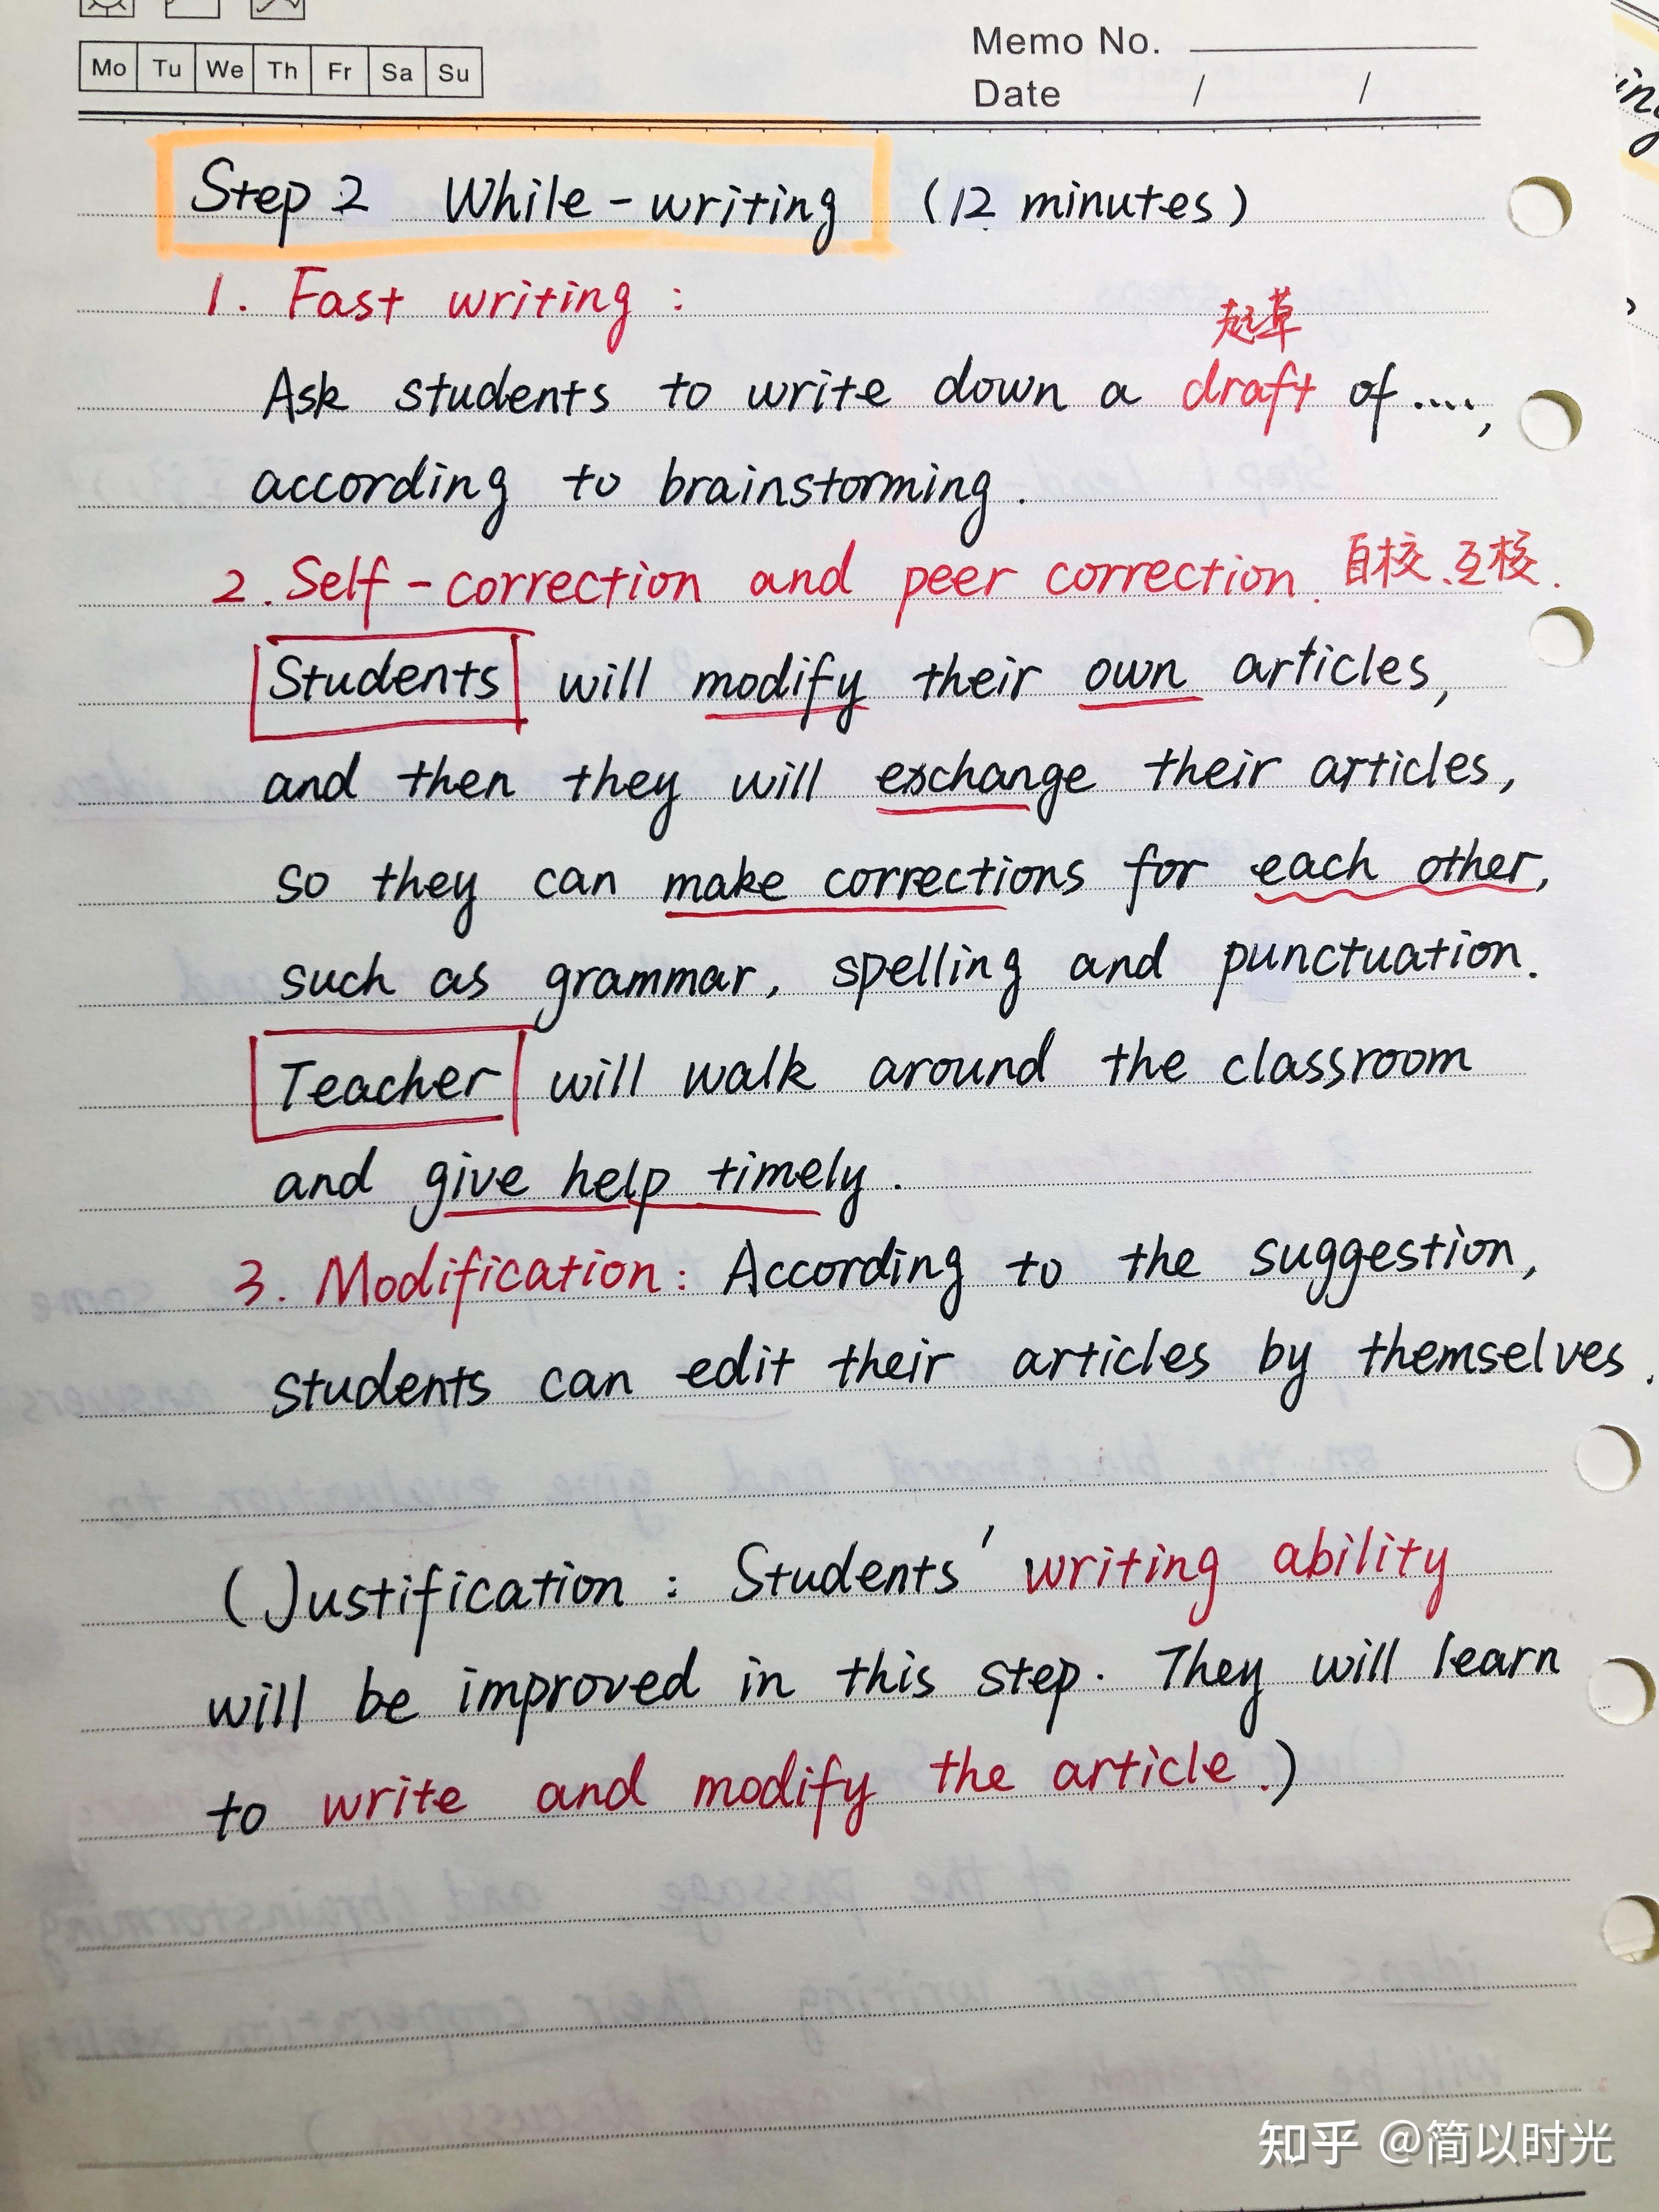 Mo Tu We Th Fr Sa Su
Memo No.
Date / /
Step 2 While-writing (12 minutes)
1. Fast writing:
起草
Ask students to write down a draft of....,
according to brainstorming.
2. Self-correction and peer correction. 自核、互核.
Students will modify their own articles,
and then they will exchange their articles,
so they can make corrections for each other,
such as grammar, spelling and punctuation.
Teacher will walk around the classroom
and give help timely.
3. Modification: According to the suggestion,
students can edit their articles by themselves.
(Justification: Students' writing ability
will be improved in this step. They will learn
to write and modify the article.)
知乎 @简以时光